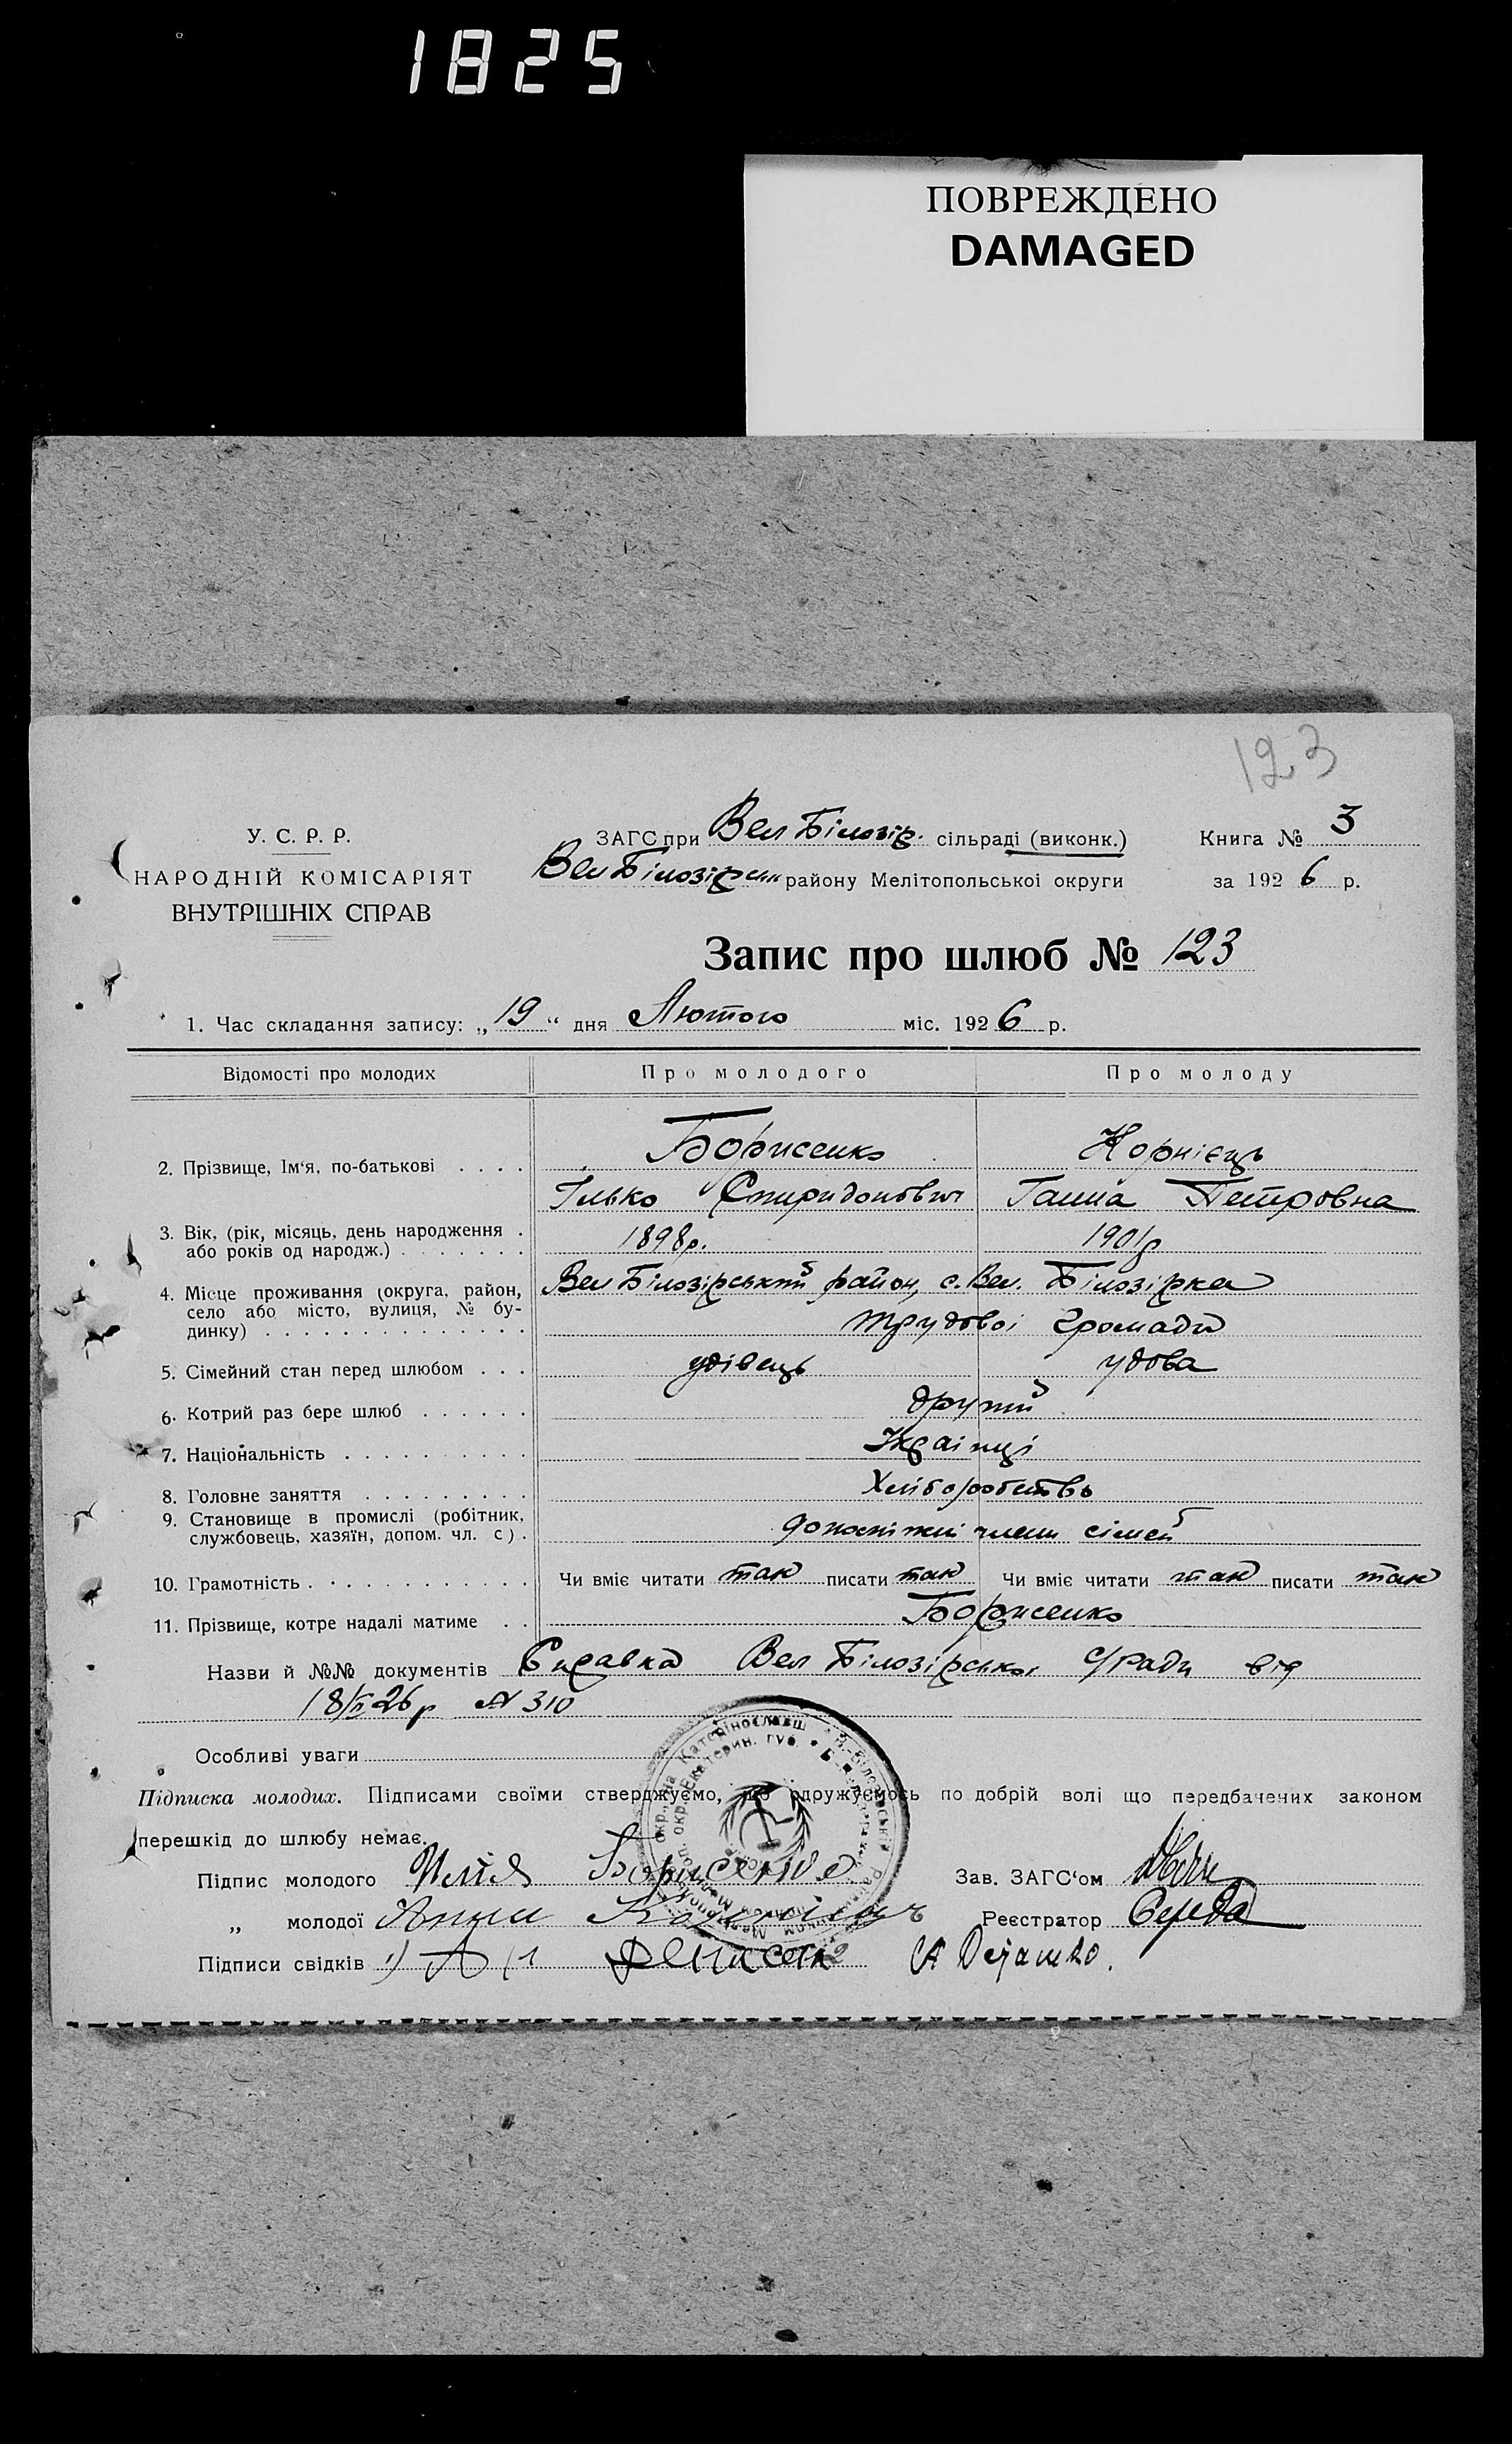 1825
ПОВРЕЖДЕНО
DAMAGED
123
У. С. Р. Р.
НАРОДНІЙ КОМІСАРІЯТ
ВНУТРІШНІХ СПРАВ
ЗАГС при Вел Білозір. сільраді (виконк.)
Книга № 3
Вел Білозірськ району Мелітопольської округи
за 1926 р.
Запис про шлюб № 123
1. Час складання запису: „19“ дня Лютого міс. 1926 р.
Відомості про молодих
Про молодого
Про молоду
2. Прізвище, Ім‘я, по-батькові
Борисенко
Ілько Спиридонович
Корнієць
Ганна Петровна
3. Вік, (рік, місяць, день народження
або років од народж.)
1898р.
1901р
4. Місце проживання (округа, район,
село або місто, вулиця, № бу-
динку)
Вел Білозірський район, с. Вел. Білозірка
трудової громади
5. Сімейний стан перед шлюбом
удівець
удова
6. Котрий раз бере шлюб
другий
7. Національність
Українці
8. Головне заняття
Хліборобство
9. Становище в промислі (робітник,
службовець, хазяїн, допом. чл. с)
допоміжні члени сімей
10. Грамотність
Чи вміє читати так писати так
Чи вміє читати так писати так
11. Прізвище, котре надалі матиме
Борисенко
Назви й №№ документів Справка Вел Білозірської с/ради від
18/II 26 р № 310
Особливі уваги
Підписка молодих. Підписами своїми стверджуємо, що одружуємось по добрій волі що передбачених законом
перешкід до шлюбу немає.
Підпис молодого Илия Борисенко
Зав. ЗАГС‘ом
„ молодої Анна Корнієць
Реєстратор Середа
Підписи свідків 1)